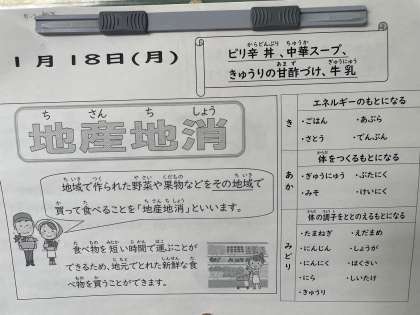 1月18日(月)
ピリ辛丼、中華スープ、
きゅうりの甘酢づけ、牛乳
地産地消
地域で作られた野菜や果物などをその地域で
買って食べることを「地産地消」といいます。
食べ物を短い時間で運ぶことが
できるため、地元でとれた新鮮な食
べ物を買うことができます。
き
エネルギーのもとになる
・ごはん ・あぶら
・さとう ・でんぷん
あか
体をつくるもとになる
・ぎゅうにゅう ・ぶたにく
・みそ ・けいにく
みどり
体の調子をととのえるもとになる
・たまねぎ ・えだまめ
・にんじん ・しょうが
・にんにく ・はくさい
・にら ・しいたけ
・きゅうり